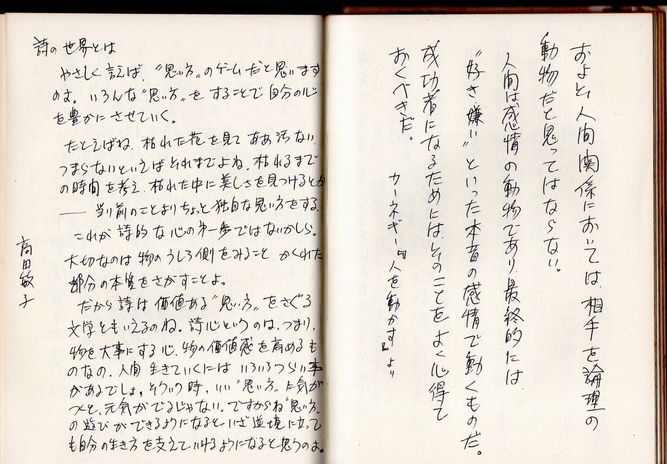 詩の世界とは
やさしく言えば、“思い方”のゲームだと思います
のよ。いろんな“思い方”をすることで自分の心
を豊かにさせていく。
たとえばね、枯れた花を見て ああ汚ない、
つまらないといえばそれまでよね、枯れるまで
の時間を考え、枯れた中に美しさを見つけるとか
── 当り前のことよりちょっと独自な思い方をする。
これが詩的な心の第一歩ではないかしら。
大切なのは物のうしろ側をみること かくれた
部分の本質をさがすことよ。
だから詩は価値ある“思い方”をさぐる
文学ともいえるのね。詩心というのは、つまり、
物を大事にする心、物の価値感を育めるも
のなの、人間 生きていくには いろいろつらい事
があるでしょ。そういう時、いい“思い方”に気が
つくと、元気がでるじゃない。ですからね“思い方”
の遊びができるようになるといざ逆境に立って
も自分の生き方を支えていけるようになると思うのよ。
高田敏子
およそ、人間関係においては、相手を論理の
動物だと思ってはならない。
人間は感情の動物であり、最終的には
“好き嫌い”といった本音の感情で動くものだ。
成功者になるためにはそのことをよく心得て
おくべきだ。
カーネギー『人を動かす』より